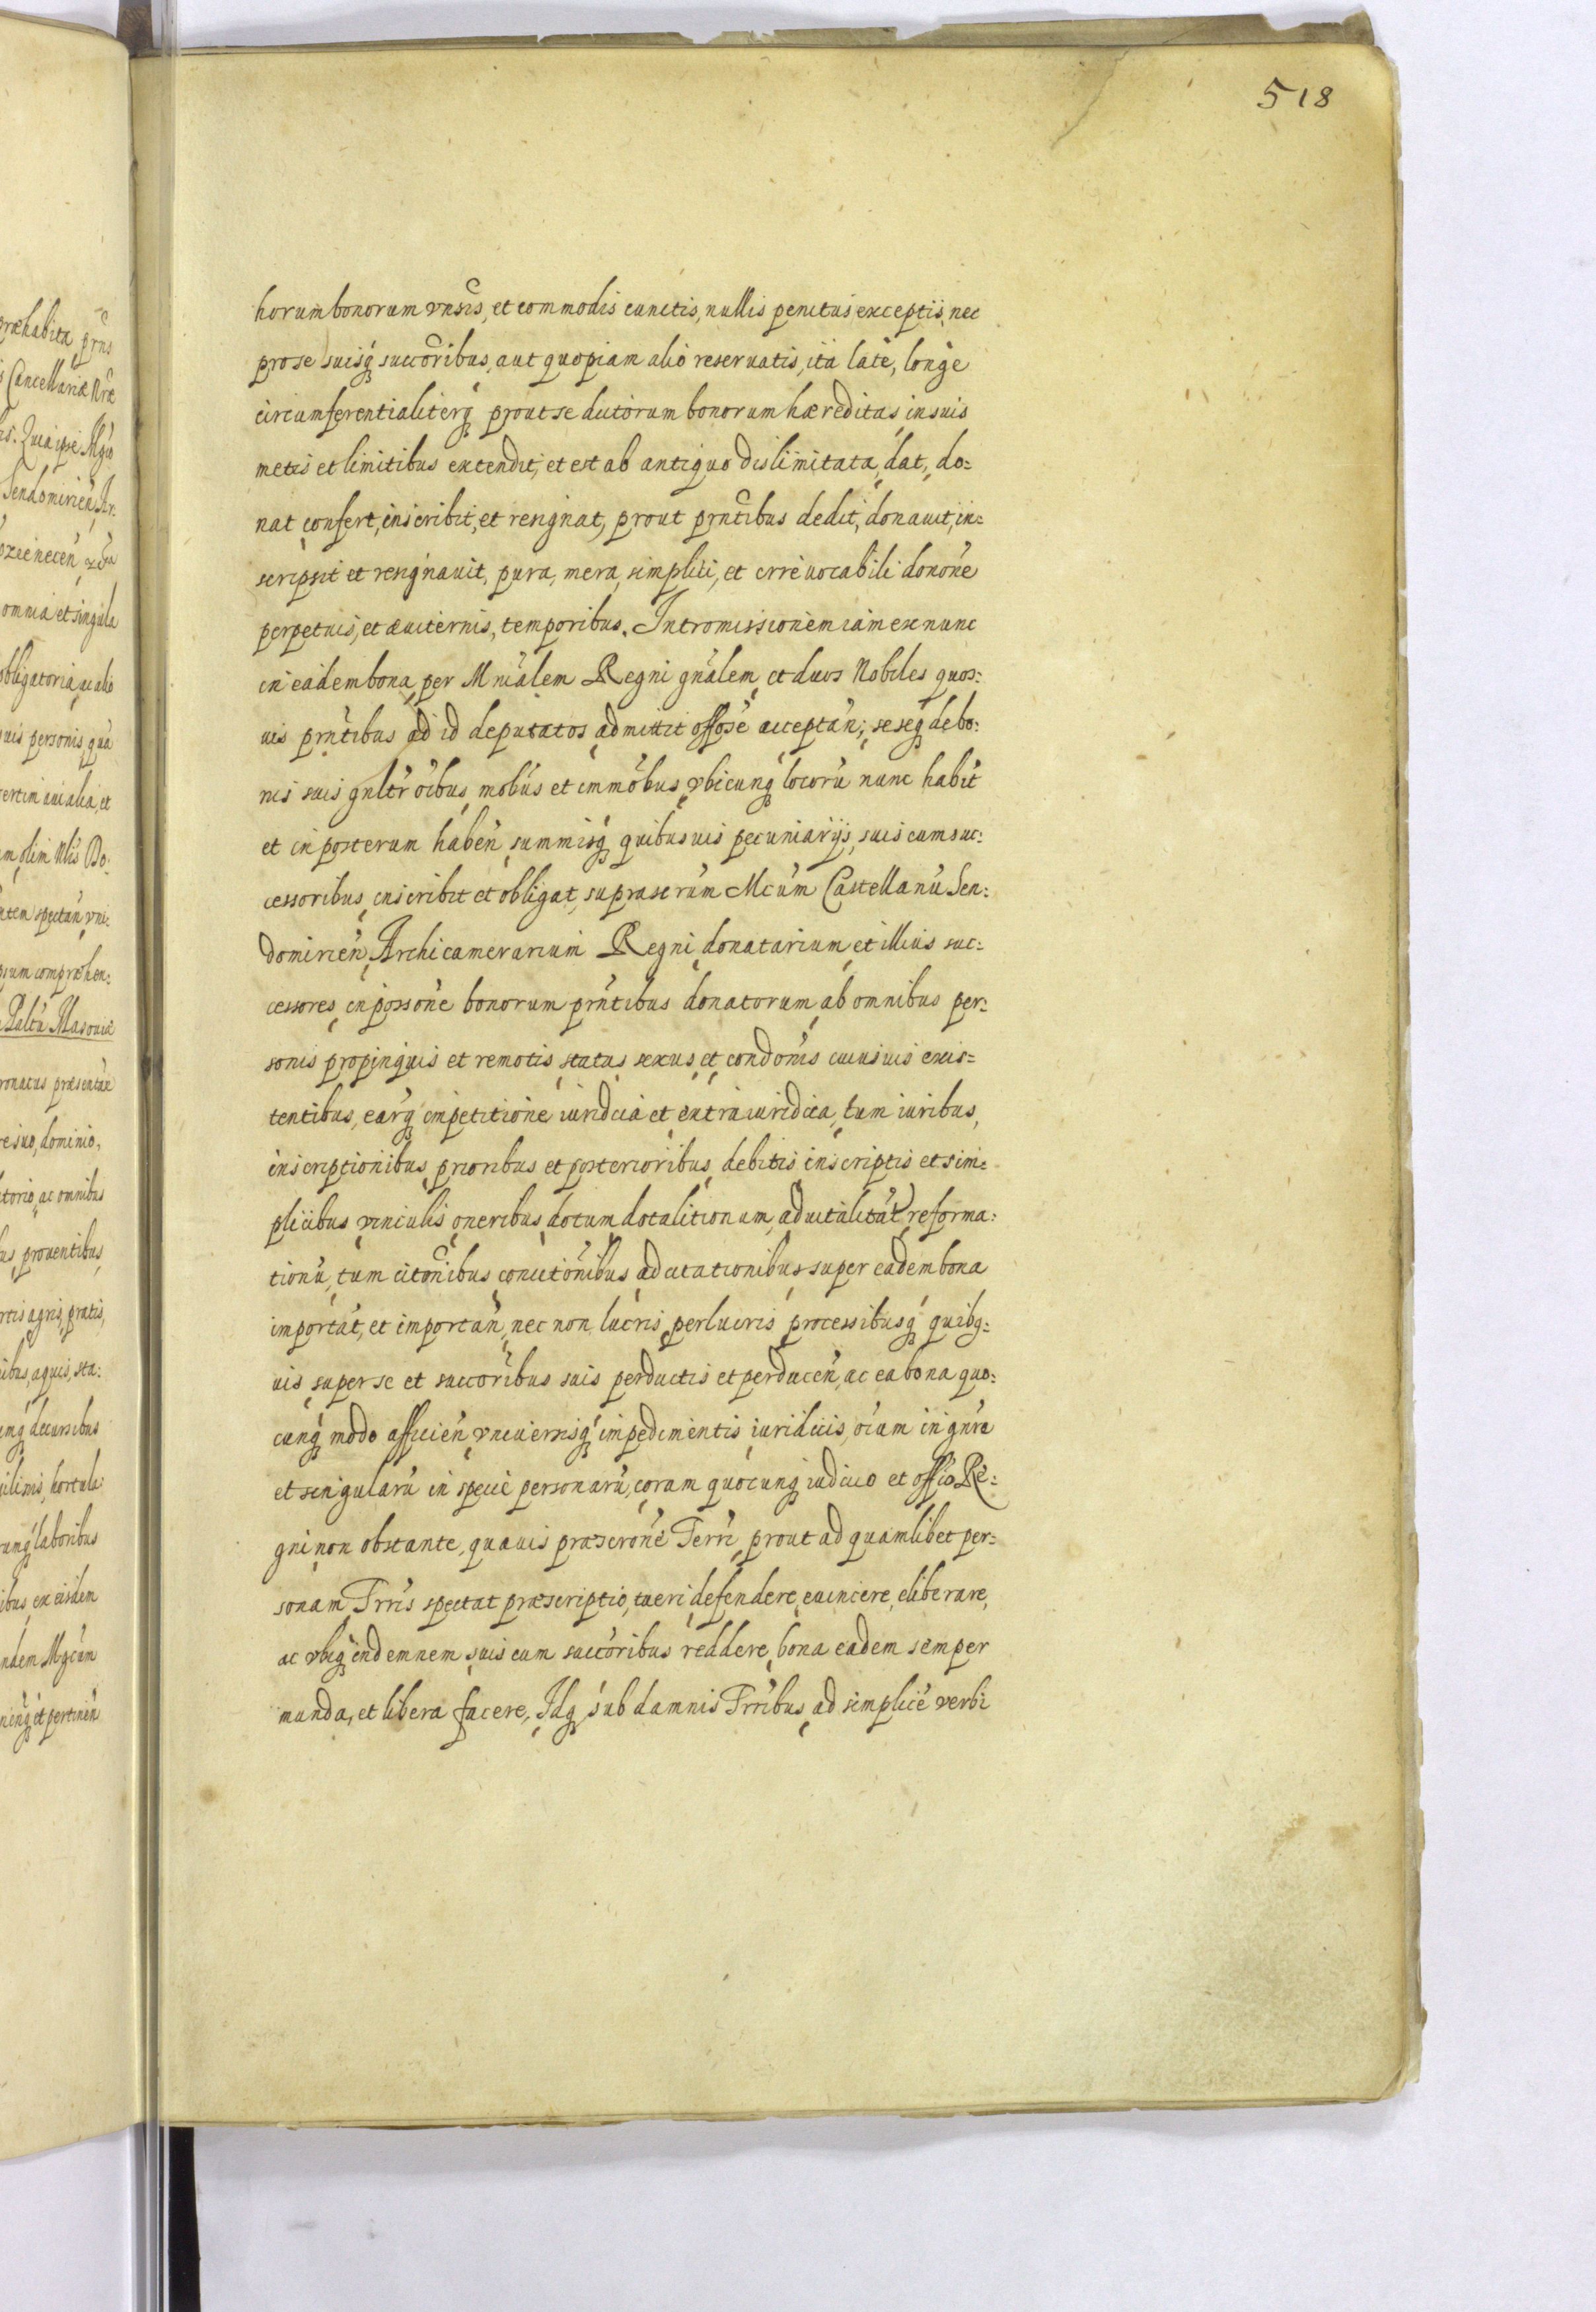 518
horum bonorum vnsis, et commodis cunctis, nullis penitus exceptis, nec
pro se suisq́ succoribus, aut quopiam alio reseruatis, ita late, longe
circumferentialiterq́ prout se dictorum bonorum hæreditas in suis
metis et limitibus extendit, et est ab antiquo dislimitata, dat, do:
nat confert, inscribit, et resignat, prout prntibus dedit, donauit, in:
scripsit et resignauit, pura, mera, simplici, et irreuocabili donone
perpetuis, et æuiternis, temporibus. Intromissionem iam ex nunc
in eadem bona per Mnialem Regni gnalem et duos Nobiles quos:
uis prntibus ad id deputatos admittit offose acceptan; seseq́ de bo:
nis suis gnltr oibus mobus et immobus vbicunq́ locorū nunc habit
et in posterum haben summisq́ quibusuis pecuniarijs, suis cum suc:
cessoribus inscribit et obligat, suprascrum Mcum Castellanū Sen:
domirien, Archicamerarium Regni donatarium et illius suc:
cessores in possone bonorum prntibus donatorum ab omnibus per:
sonis propinquis et remotis status sexus et condonis cuiusuis exis=
tentibus, earq́ impetitione iuridica et extraiuridica, tum iuribus,
inscriptionibus prioribus et posterioribus debitis inscriptis et sim:
plicibus vinculis oneribus dotum dotalitionum, aduitalitat reforma:
tionū, tum citonibus conuctonibus adcitationibus super eadem bona
importat, et importan, nec non lucris perlucris processibusq́ quibg:
uis super se et succoribus suis perductis et perducen, ac ea bona quo:
cunq́ modo afficien vniuersisq́ impedimentis iuridicis, oiam in gnre
et singularū in specie personarū, coram quocunq́ iudicio et offio Re:
gni non obstante, quauis præscrone Terri prout ad quamlibet per:
sonam Trris spectat præscriptio, tueri defendere, euincere, eliberare,
ac vbiq́ indemnem suis cum succoribus reddere, bona eadem semper
munda, et libera facere, Idq́ sub damnis Trribus ad simplice verbi